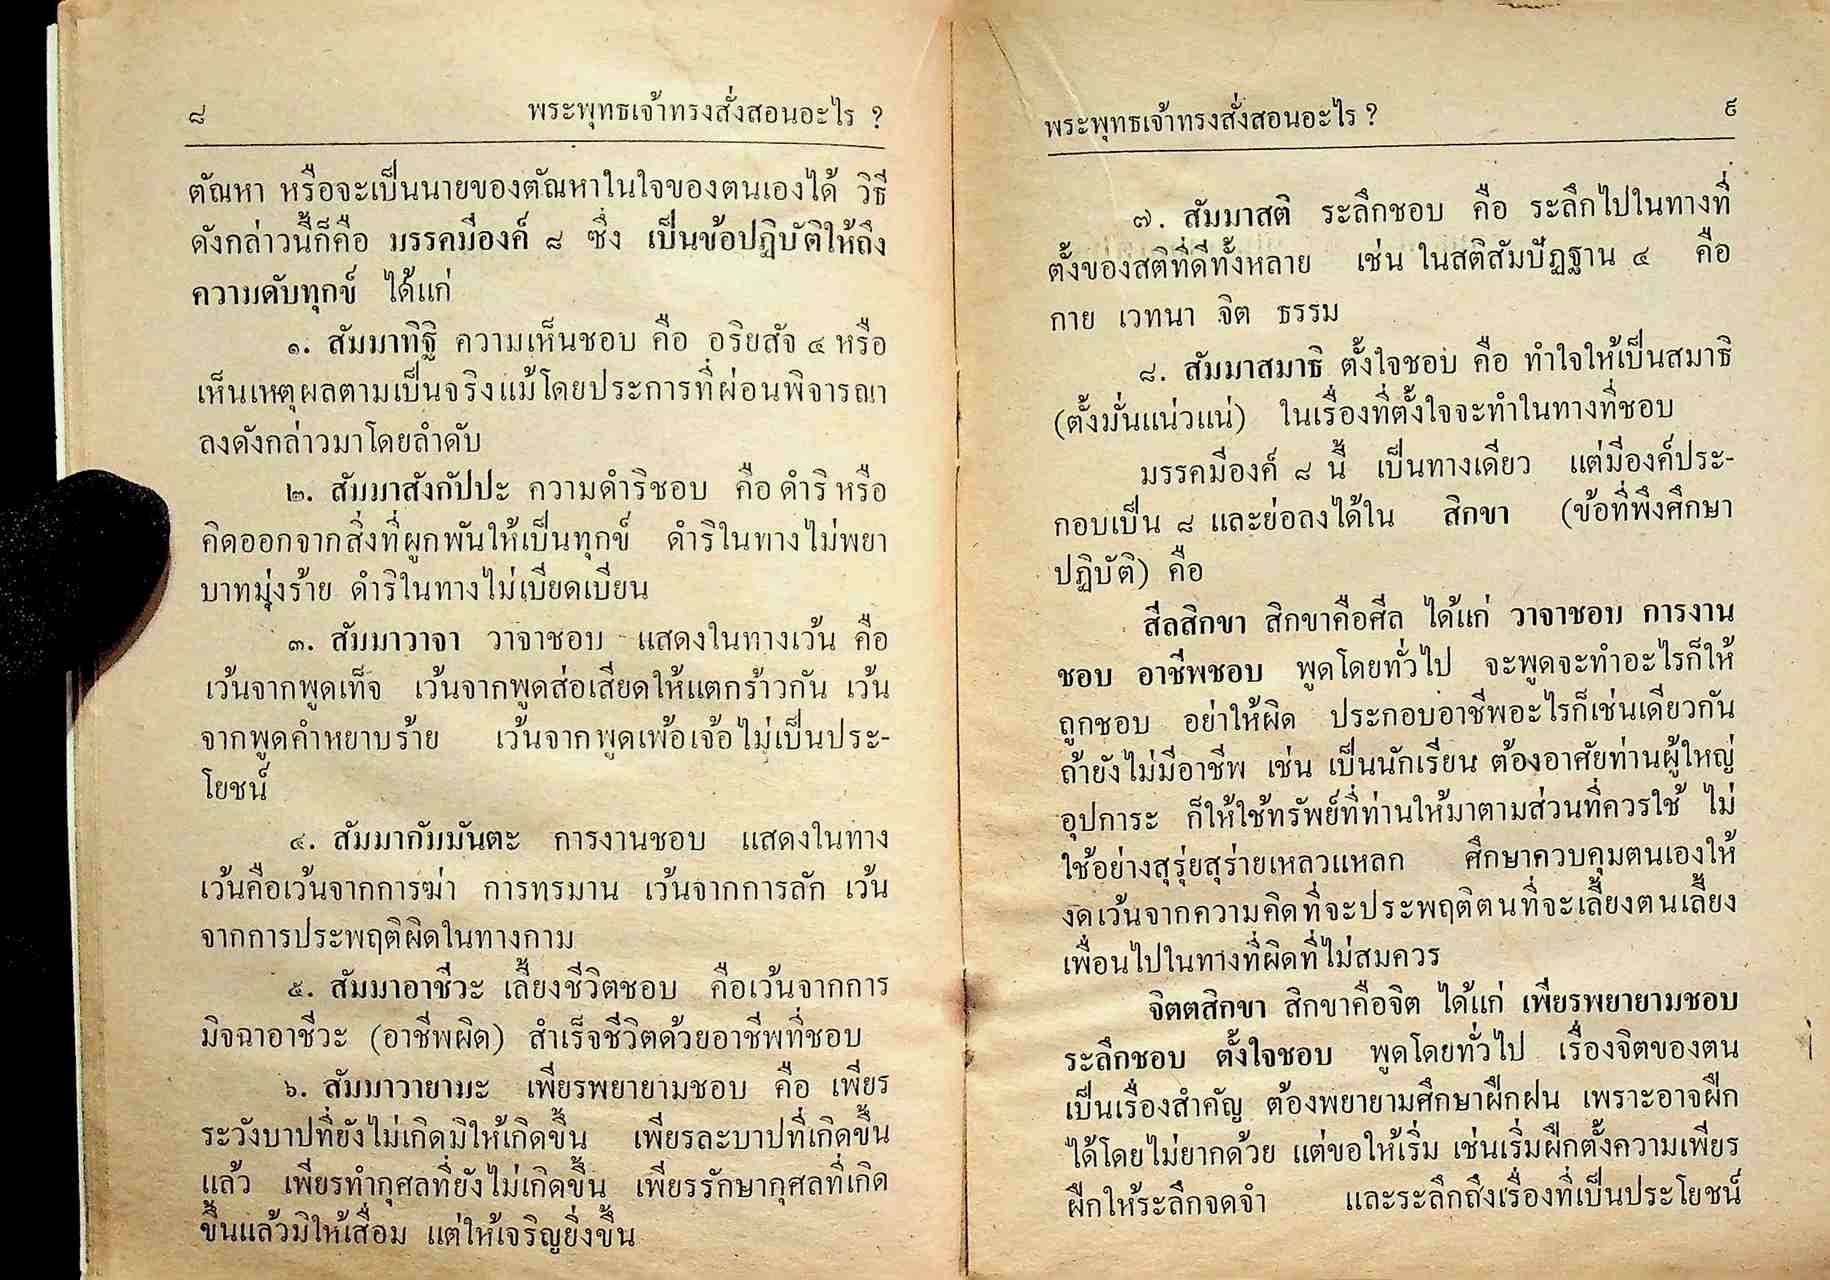 ๘ พระพุทธเจ้าทรงสั่งสอนอะไร ?
ตัณหา หรือจะเป็นนายของตัณหาในใจของตนเองได้ วิธี
ดังกล่าวนี้ก็คือ มรรคมีองค์ ๘ ซึ่ง เป็นข้อปฏิบัติให้ถึง
ความดับทุกข์ ได้แก่
๑. สัมมาทิฐิ ความเห็นชอบ คือ อริยสัจ ๔ หรือ
เห็นเหตุผลตามเป็นจริงแม้โดยประการที่ผ่อนพิจารณา
ลงดังกล่าวมาโดยลำดับ
๒. สัมมาสังกัปปะ ความดำริชอบ คือ ดำริ หรือ
คิดออกจากสิ่งที่ผูกพันให้เป็นทุกข์ ดำริในทางไม่พยา
บาทมุ่งร้าย ดำริในทางไม่เบียดเบียน
๓. สัมมาวาจา วาจาชอบ แสดงในทางเว้น คือ
เว้นจากพูดเท็จ เว้นจากพูดส่อเสียดให้แตกร้าวกัน เว้น
จากพูดคำหยาบร้าย เว้นจากพูดเพ้อเจ้อไม่เป็นประ-
โยชน์
๔. สัมมากัมมันตะ การงานชอบ แสดงในทาง
เว้นคือเว้นจากการฆ่า การทรมาน เว้นจากการลัก เว้น
จากการประพฤติผิดในทางกาม
๕. สัมมาอาชีวะ เลี้ยงชีวิตชอบ คือเว้นจากการ
มิจฉาอาชีวะ (อาชีพผิด) สำเร็จชีวิตด้วยอาชีพที่ชอบ
๖. สัมมาวายามะ เพียรพยายามชอบ คือ เพียร
ระวังบาปที่ยังไม่เกิดมิให้เกิดขึ้น เพียรละบาปที่เกิดขึ้น
แล้ว เพียรทำกุศลที่ยังไม่เกิดขึ้น เพียรรักษากุศลที่เกิด
ขึ้นแล้วมิให้เสื่อม แต่ให้เจริญยิ่งขึ้น
พระพุทธเจ้าทรงสั่งสอนอะไร ? ๙
๗. สัมมาสติ ระลึกชอบ คือ ระลึกไปในทางที่
ตั้งของสติที่ดีทั้งหลาย เช่น ในสติสัมปัฏฐาน ๔ คือ
กาย เวทนา จิต ธรรม
๘. สัมมาสมาธิ ตั้งใจชอบ คือ ทำใจให้เป็นสมาธิ
(ตั้งมั่นแน่วแน่) ในเรื่องที่ตั้งใจจะทำในทางที่ชอบ
มรรคมีองค์ ๘ นี้ เป็นทางเดียว แต่มีองค์ประ-
กอบเป็น ๘ และย่อลงได้ใน สิกขา (ข้อที่พึงศึกษา
ปฏิบัติ) คือ
สีลสิกขา สิกขาคือศีล ได้แก่ วาจาชอบ การงาน
ชอบ อาชีพชอบ พูดโดยทั่วไป จะพูดจะทำอะไรก็ให้
ถูกชอบ อย่าให้ผิด ประกอบอาชีพอะไรก็เช่นเดียวกัน
ถ้ายังไม่มีอาชีพ เช่น เป็นนักเรียน ต้องอาศัยท่านผู้ใหญ่
อุปการะ ก็ให้ใช้ทรัพย์ที่ท่านให้มาตามส่วนที่ควรใช้ ไม่
ใช้อย่างสุรุ่ยสุร่ายเหลวแหลก ศึกษาควบคุมตนเองให้
งดเว้นจากความคิดที่จะประพฤติตนที่จะเลี้ยงตนเลี้ยง
เพื่อนไปในทางที่ผิดที่ไม่สมควร
จิตตสิกขา สิกขาคือจิต ได้แก่ เพียรพยายามชอบ
ระลึกชอบ ตั้งใจชอบ พูดโดยทั่วไป เรื่องจิตของตน
เป็นเรื่องสำคัญ ต้องพยายามศึกษาฝึกฝน เพราะอาจฝึก
ได้โดยไม่ยากด้วย แต่ขอให้เริ่ม เช่นเริ่มฝึกตั้งความเพียร
ฝึกให้ระลึกจดจำ และระลึกถึงเรื่องที่เป็นประโยชน์